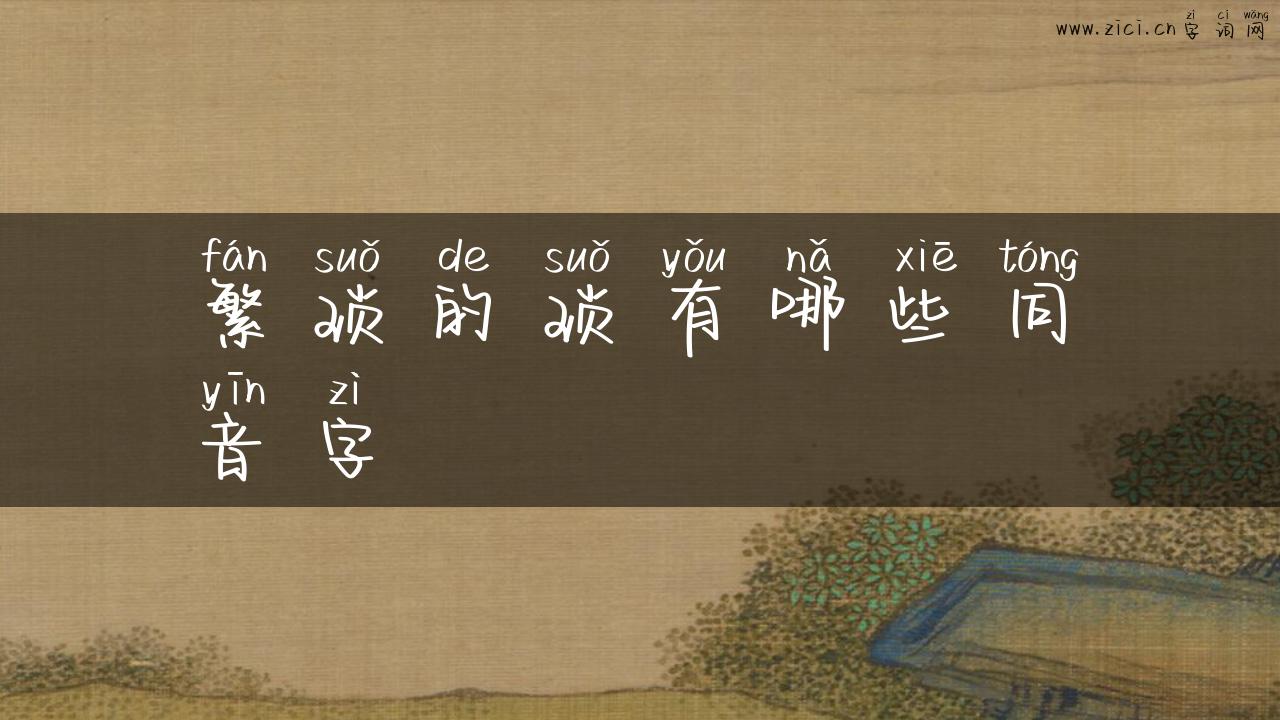 www.zici.cn zì cí wǎng
字词网
fán suǒ de suǒ yǒu nǎ xiē tóng
繁琐的琐有哪些同
yīn zì
音字